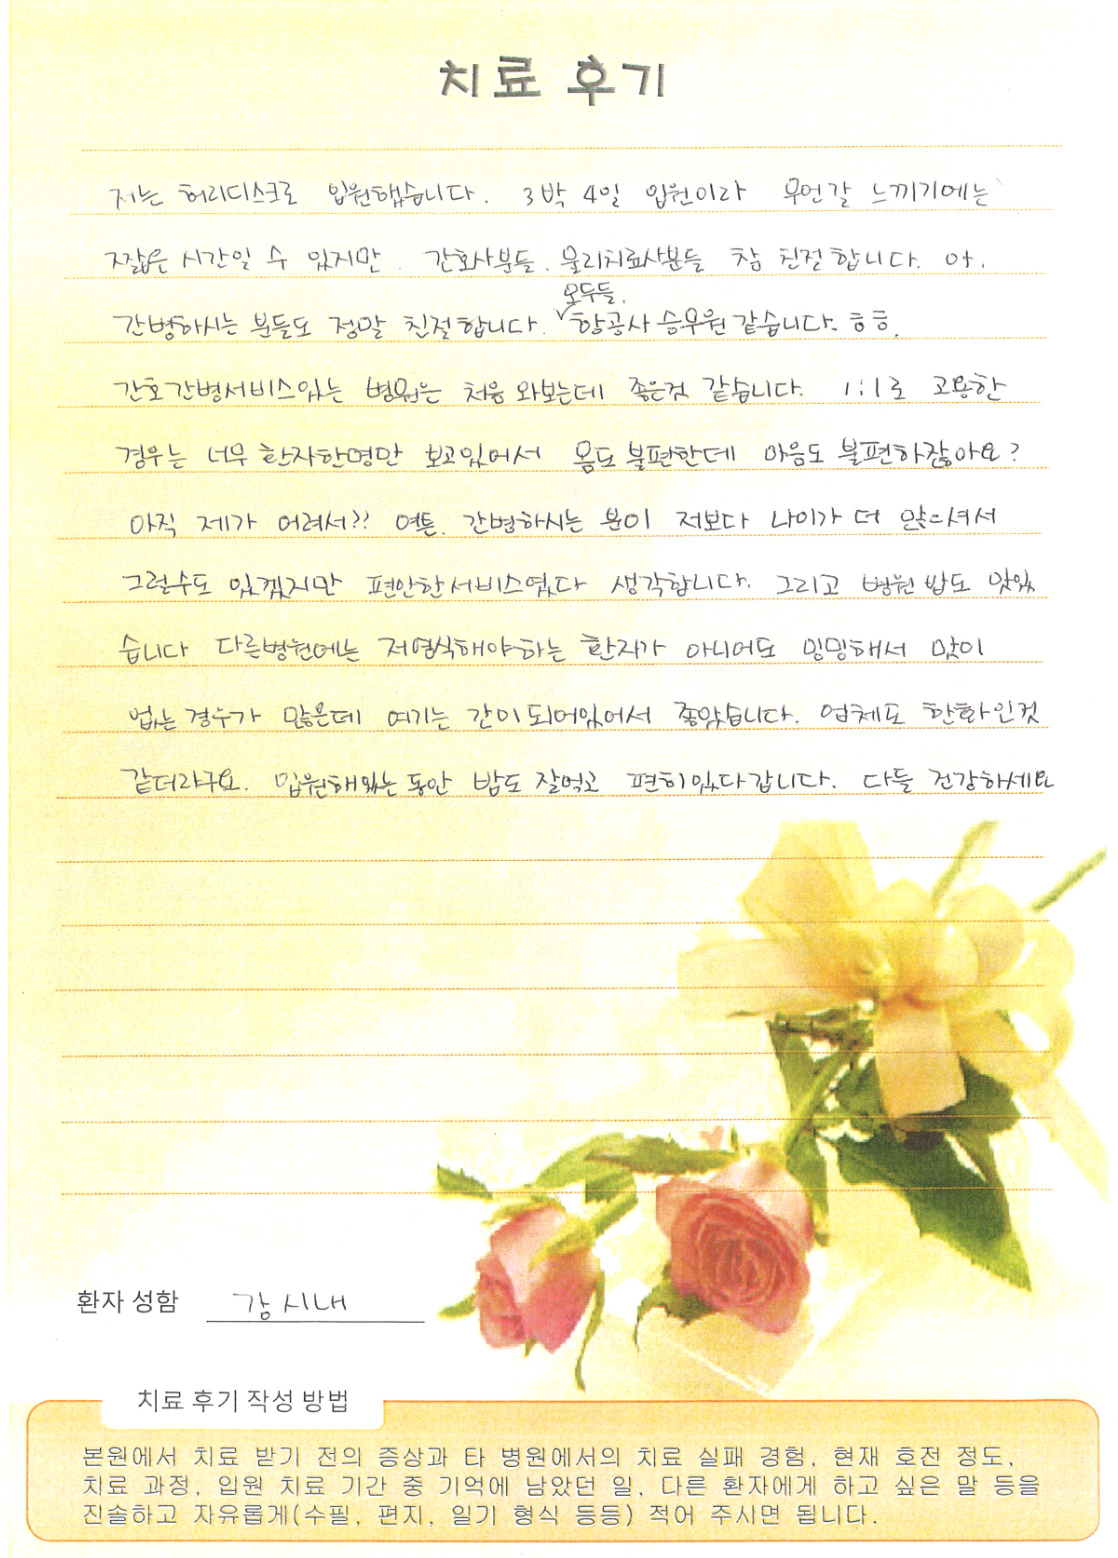 치료 후기
저는 허리디스크로 입원했습니다. 3박 4일 입원이라 무언갈 느끼기에는
짧은 시간일 수 있지만. 간호사분들. 물리치료사분들 참 친절합니다. 아.
모두들.
간병하시는 분들도 정말 친절합니다. 항공사 승무원 같습니다. ㅎㅎ.
간호간병서비스있는 병원은 처음 와보는데 좋은것 같습니다. 1:1로 고용한
경우는 너무 환자한명만 보고있어서 몸도 불편한데 마음도 불편하잖아요?
아직 제가 어려서?? 여튼. 간병하시는 분이 저보다 나이가 더 많으셔서
그럴수도 있겠지만 편안한서비스였다 생각합니다. 그리고 병원 밥도 맛있
습니다 다른병원에는 저염식해야하는 환자가 아니어도 밍밍해서 맛이
없는 경우가 많은데 여기는 간이되어있어서 좋았습니다. 업체도 한화인것
같더라구요. 입원해있는 동안 밥도 잘먹고 편히있다갑니다. 다들 건강하세요
환자 성함 강시내
치료 후기 작성 방법
본원에서 치료 받기 전의 증상과 타 병원에서의 치료 실패 경험, 현재 호전 정도,
치료 과정, 입원 치료 기간 중 기억에 남았던 일, 다른 환자에게 하고 싶은 말 등을
진솔하고 자유롭게(수필, 편지, 일기 형식 등등) 적어 주시면 됩니다.